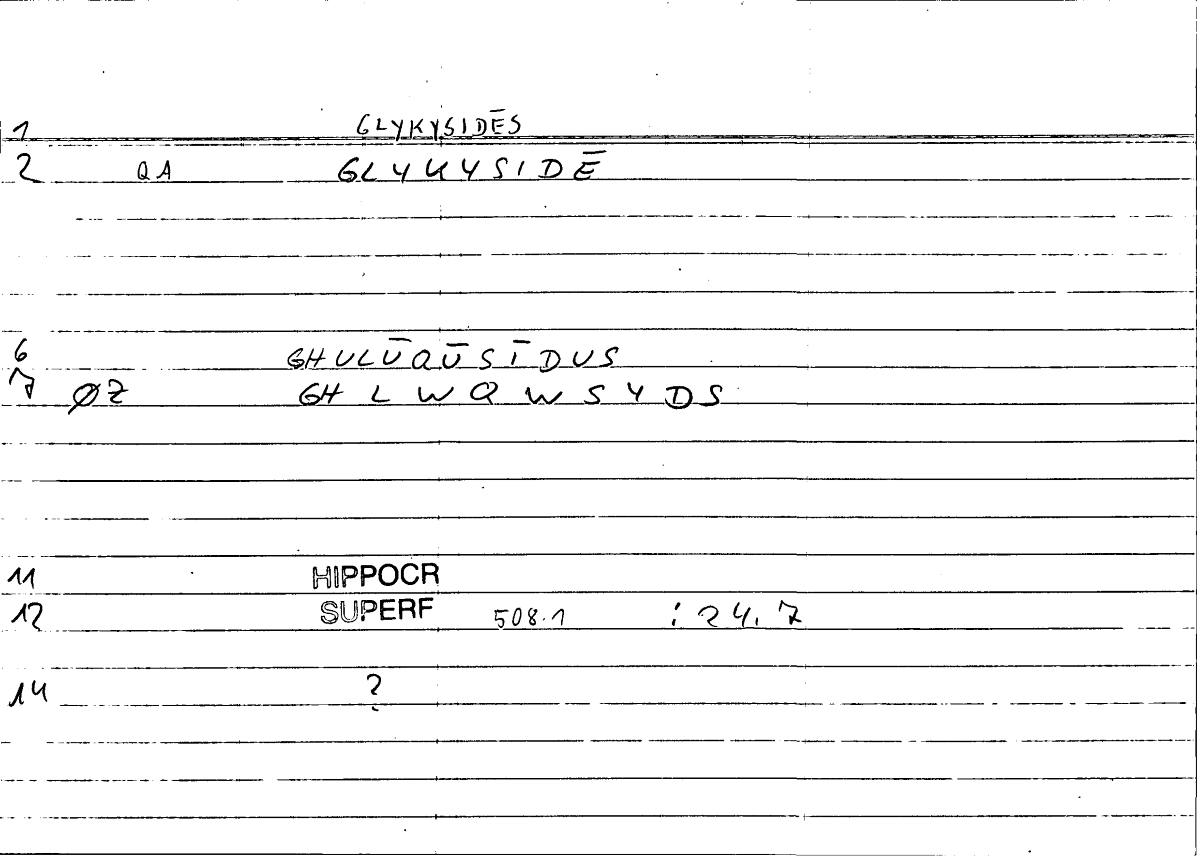 1 GLYKYSIDĒS
2 QA GLYKYSIDĒ
6 GHULŪQŪSĪDUS
7 ØZ GHLWQWSYDS
11 HIPPOCR
12 SUPERF 508.1 : 24.7
14 ?